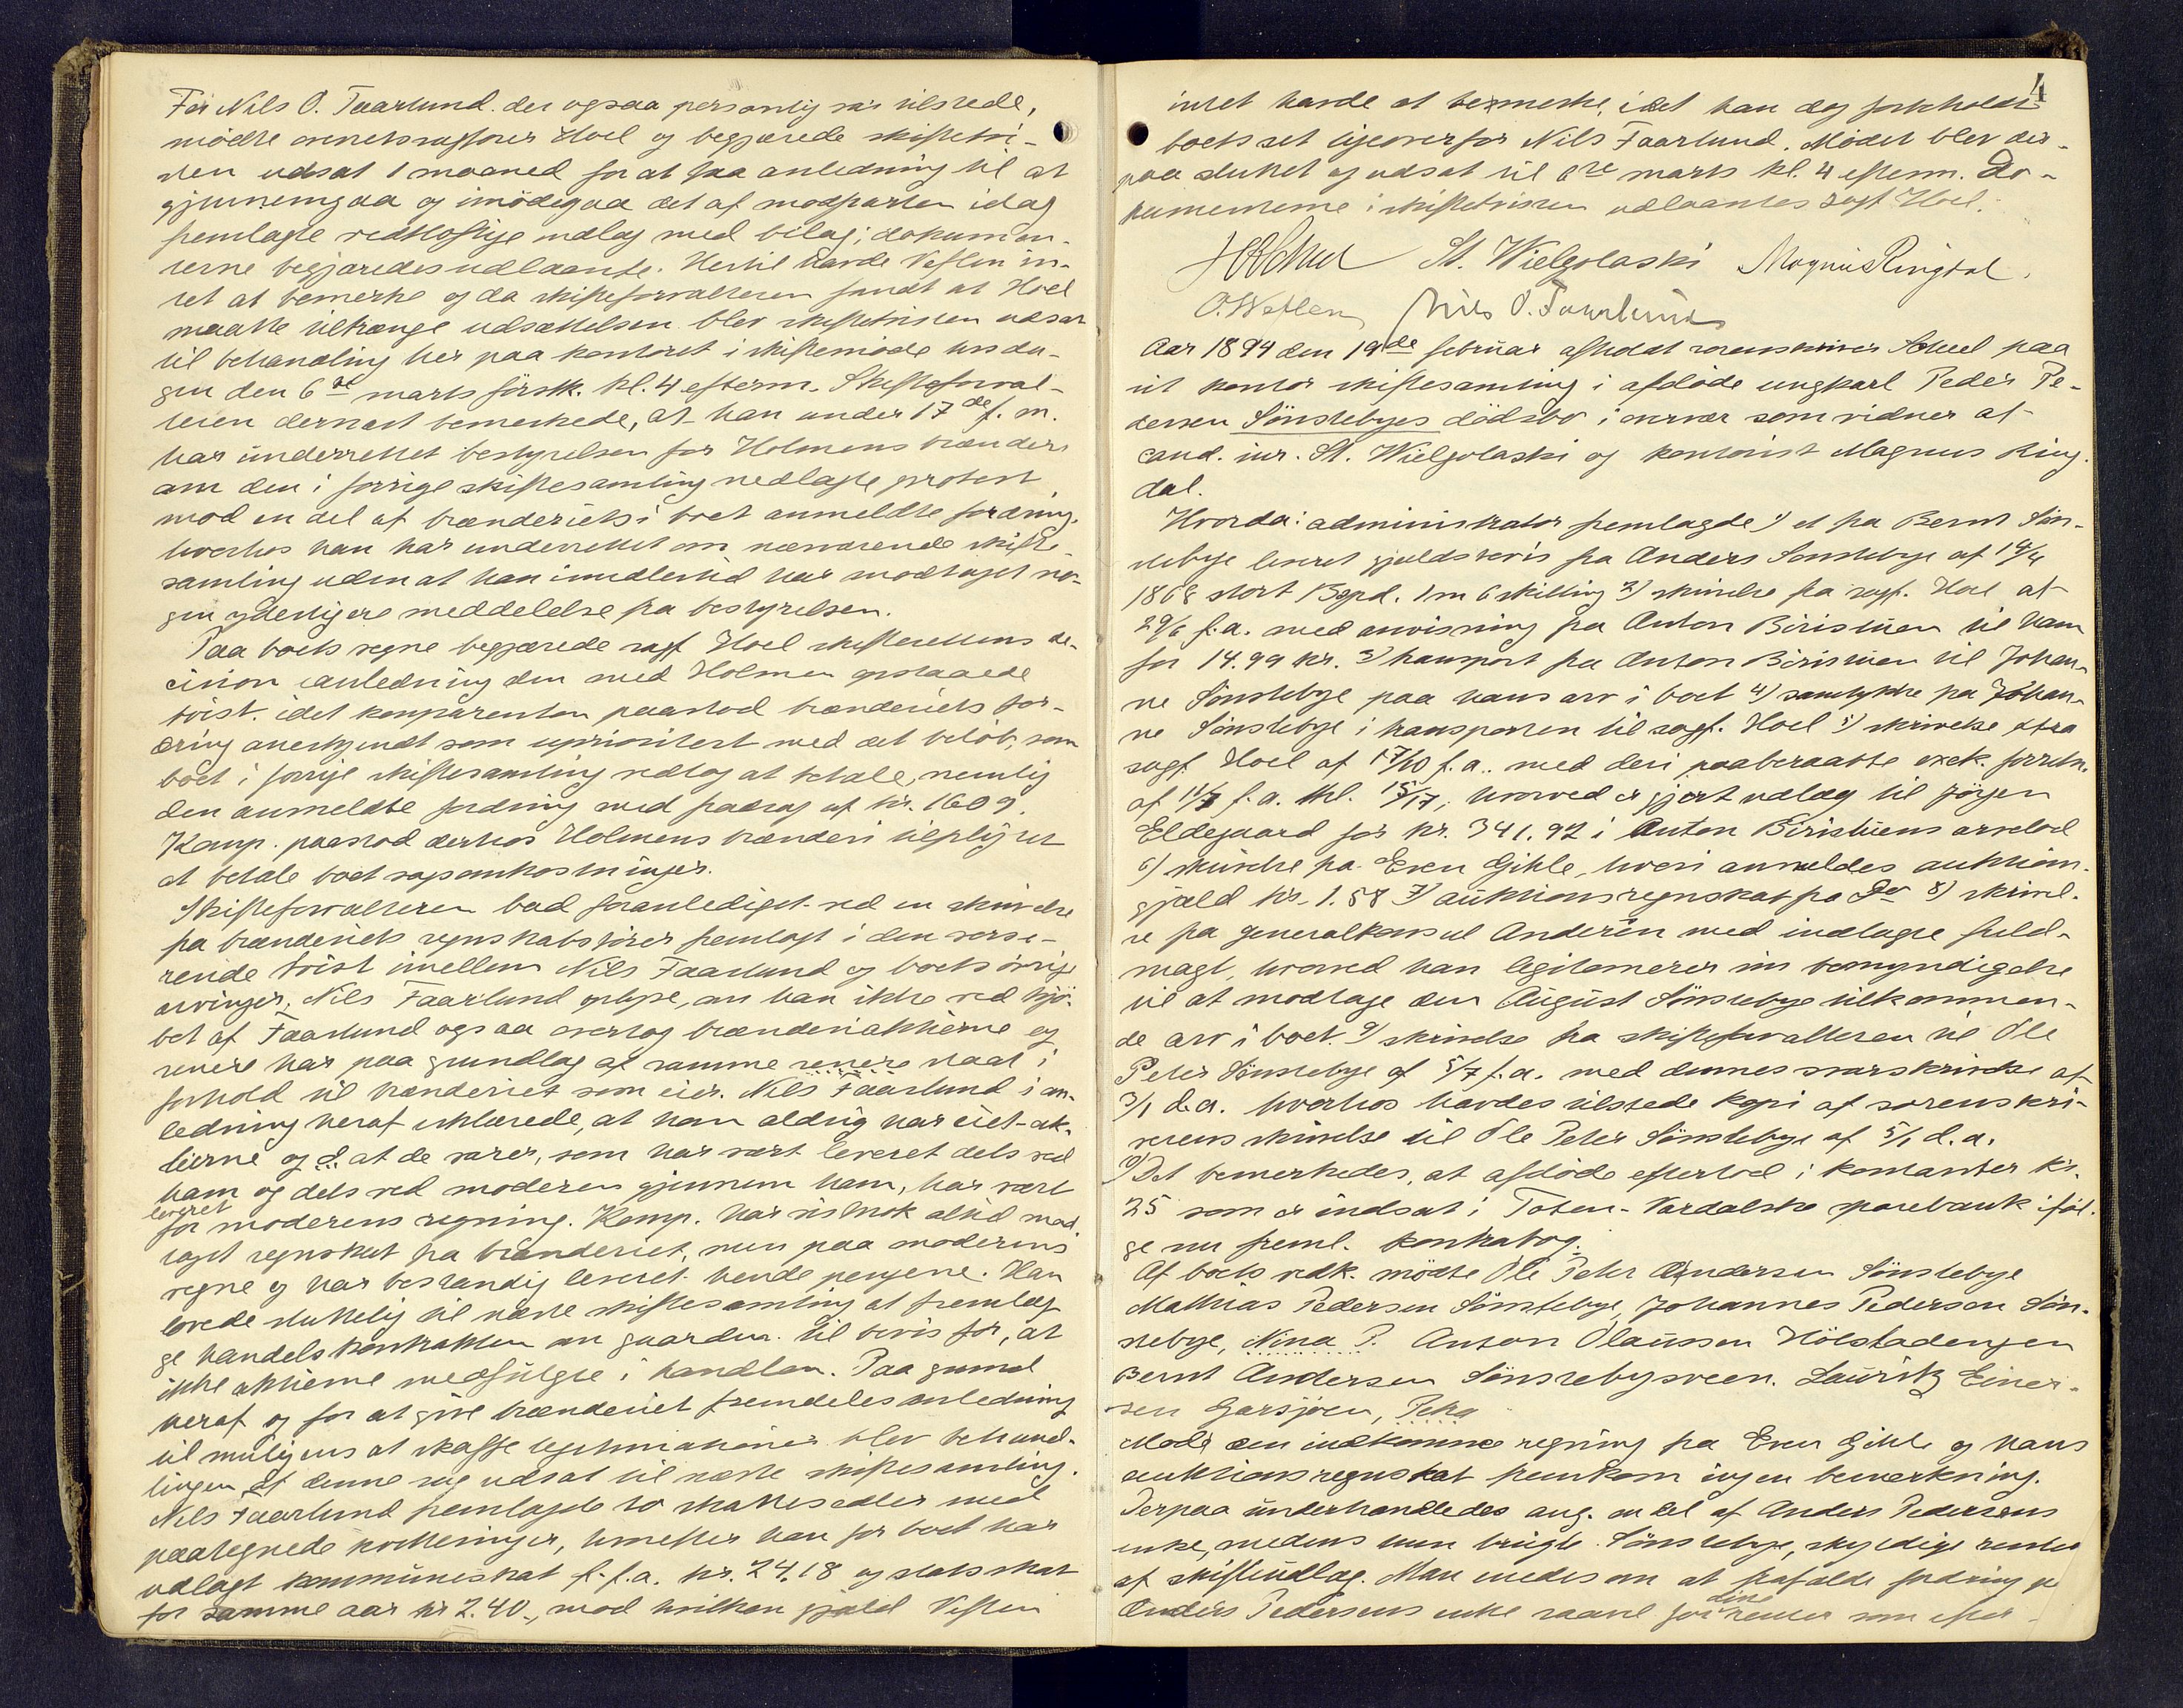 For Nils O. Faarlund, der ogsaa personlig var tilstede,
mödte overretssagfører Hoel og begjærede skiftetvi-
sten udsat 1 maaned for at faa anledning til at
gjennemgaa og imödegaa det af modparten idag
fremlagte vidtløftige indlæg med bilag; dokumen-
terne begjæredes udlaante. Hertil havde Veflen in-
tet at bemerke og da skifteforvalteren fandt at Hoel
maatte tiltrænge udsættelsen blev skiftetvisten udsat
til behandling her paa kontoret i skiftemöde tirsda-
gen den 6te marts förstk. kl. 4 efterm. Skifteforval-
teren dernæst bemerkede, at han under 17de f. m.
har underrettet bestyrelsen for Holmens brænderi
om den i forrige skiftesamling nedlagte protest
mod en del af brænderiets i boet anmeldte fordring,
hvorhos han har underrettet om nærværende skifte-
samling uden at han imidlertid har modtaget no-
gen yderligere meddelelse fra bestyrelsen.
Paa boets vegne begjærede sagf. Hoel skifterettens de-
cision i anledning den med Holmen opstaaede
tvist, idet komparenten paastod brænderiets for-
dring anerkjendt som uprioritert med det beløb, som
boet i forrige skiftesamling vedtog at betale, nemlig
den anmeldte fordring med fradrag af kr. 1609.
Komp. paastod derhos Holmens brænderi tilpligtet
at betale boet sagsomkostninger.
Skifteforvalteren bad foranlediget ved en skrivelse
fra brænderiets regnskabsfører fremlagt i den verse-
rende tvist imellem Nils Faarlund og boets övrige
arvinger, Nils Faarlund oplyse, om han ikke ved kjö-
bet af Faarlund ogsaa overtog brænderiaktierne og
senere har paa grundlag af samme senere staat i
forhold til brænderiet som eier. Nils Faarlund i an-
ledning heraf erklærede, at han aldrig har eiet ak-
tierne og d. at de varer, som har vært leveret dels ved
ham og dels ved moderen gjennem ham, har vært
leveret
for moderens regning. Komp. har vistnok altid mod
taget regnskab fra brænderiet, men paa moderens
vegne og har bestandig leveret hende pengene. Han
lovede sluttelig til næste skiftesamling at fremlæg-
ge handelskontrakten om gaarden til bevis for, at
ikke aktierne medfulgte i handlen. Paa grund
heraf og for at give brænderiet fremdeles anledning
til muligens at skaffe legitimationer blev behand-
lingen af denne sag udsat til næste skiftesamling.
Nils Faarlund fremlagde to skattesedler med
paategnede kvitteringer, hvorefter han for boet har
udlagt kommuneskat f. f. a. kr. 24.18 og statsskat
for samme aar kr 2.40, mod hvilken gjæld Veflen
4
intet havde at bemerke, idet han dog forbeholdt
boets ret ligeoverfor Nils Faarlund. Mödet blev der-
paa sluttet og udsat til 6te marts kl. 4 efterm. Do-
kumenterne i skiftetvisten udlaantes sagf. Hoel.
St. Wielgolaski Magnus Ringdal.
O. Weflen Nils O. Faarlund
Aar 1894 den 19de februar afholdt sorenskriver Scheel paa
sit kontor skiftesamling i afdöde ungkarl Peder Pe-
dersen Sönstebyes dödsbo i overvær som vidner af
cand. jur. St. Wielgolaski og kontorist Magnus Ring-
dal.
Hvorda: administrator fremlagde 1) et fra Bernt Sön-
stebye leveret gjeldsbevis fra Anders Sønstebye af 14/4
1868 stort 13 spd. 1 m 6 skilling 2) skrivelse fra sagf. Hoel af
29/6 f. a. med anvisning fra Anton Biristuen til ham
for 14.99 kr. 3) transport fra Anton Biristuen til Johan-
ne Sönstebye paa hans arv i boet 4) samtykke fra Johan-
ne Sönstebye i transporten til sagf. Hoel 5) skrivelse fra
sagf. Hoel af 17/10 f. a. med deri paaberaabte exek. forretn.
af 11/7 f. a. thl. 15/17, hvorved er gjort udlæg til Jörgen
Eldegaard for kr. 341.92 i Anton Biristuens arvelod
6) skrivelse fra Even Gihle, hvori anmeldes auktions-
gjæld kr. 1.58 7) auktionsregnskab fra Do 8) skrivel-
se fra generalkonsul Anderën med indlagte fuld-
magt, hvorved han legitimerer sin bemyndigelse
til at modtage den August Sönstebye tilkommen-
de arv i boet. 9) skrivelse fra skifteforvalteren til Ole
Peter Sönstebye af 5/7 f. a. med dennes svarskrivelse af
3/1 d. a. hvorhos havdes tilstede kopi af sorenskri-
verens skrivelse til Ole Peter Sönstebye af 5/1 d. a.
Det bemerkedes, at afdöde efterlod i kontanter kr.
25 som er indsat i Toten-Vardalske sparebank iföl-
ge nu freml. kontrabog.
Af boets vedk. mödte Ole Peter Andersen Sönstebye
Mathias Pedersen Sönstebye, Johannes Pedersen Sön-
stebye, Nina P. Anton Olaussen Hölstadengen
Bernt Andersen Sönstebysveen. Lauritz Einer-
sen Garsjöen, Petra
Mod den indkomne regning fra Even Gihle og hans
auktionsregnskab fremkom ingen bemærkning.
Derpaa underhandledes ang. en del af Anders Pedersens
enke, medens hun brugte Sönstebye, skyldige renter
af skifteudlæg. Man enedes om at frafalde fordring paa
Anders Pedersens enke saavel for dine renter som efter-